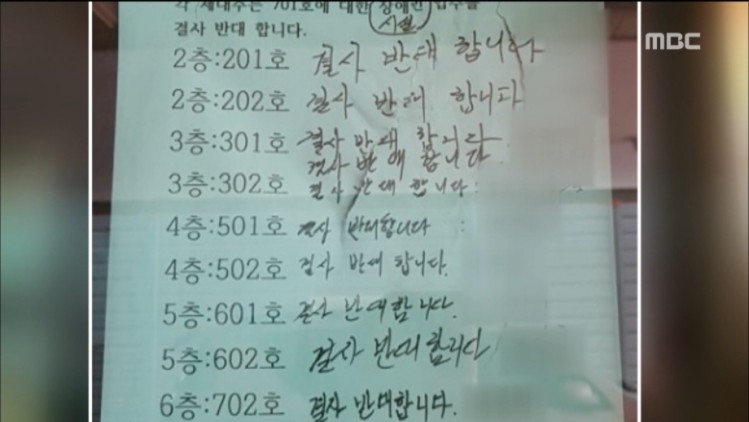 각 세대주는 701호에 대한 장애인 입주를
시설
결사 반대 합니다.
MBC
2층:201호 결사 반대 합니다
2층:202호 결사 반대 합니다
3층:301호 결사 반대 합니다
결사 반대 합니다
3층:302호 결사 반대 합니다.
4층:501호 결사 반대합니다
4층:502호 결사 반대 합니다.
5층:601호 결사 반대합니다.
5층:602호 결사 반대합니다
6층:702호 결사 반대합니다.